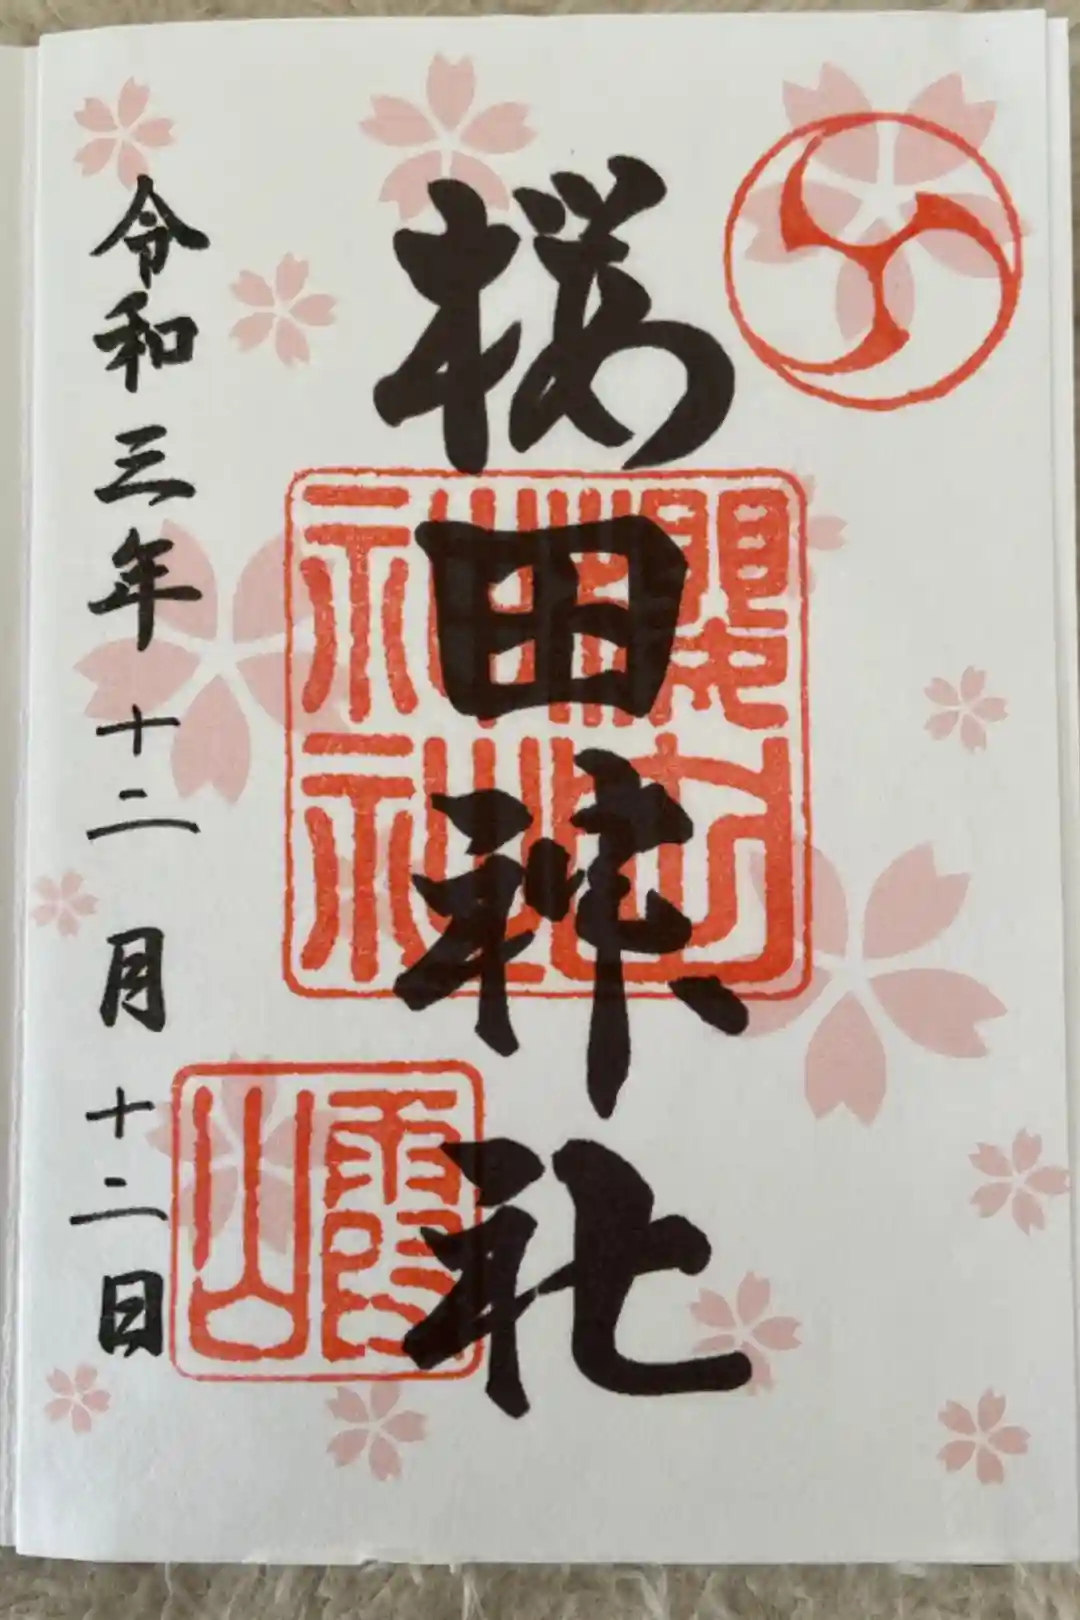 桜田神社
霞山
令和三年十二月十二日